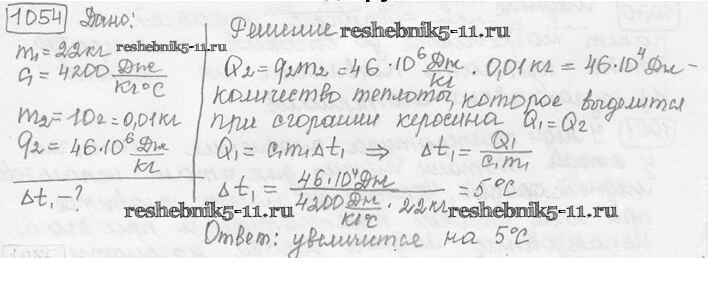 1054 Дано:
m₁ = 22 кг
c₁ = 4200 Дж/кг°С
m₂ = 10г = 0,01кг
q₂ = 46·10⁶ Дж/кг
Δt₁ - ?
Решение
reshebnik5-11.ru
reshebnik5-11.ru
Q₂ = q₂m₂ = 46·10⁶ Дж/кг · 0,01кг = 46·10⁴ Дж -
количество теплоты, которое выделится
при сгорании керосина Q₁ = Q₂
Q₁ = c₁m₁Δt₁ ⇒ Δt₁ = Q₁/c₁m₁
Δt₁ = 46·10⁴Дж / 4200 Дж/кг°С · 22кг = 5°С
reshebnik5-11.ru
reshebnik5-11.ru
Ответ: увеличится на 5°С